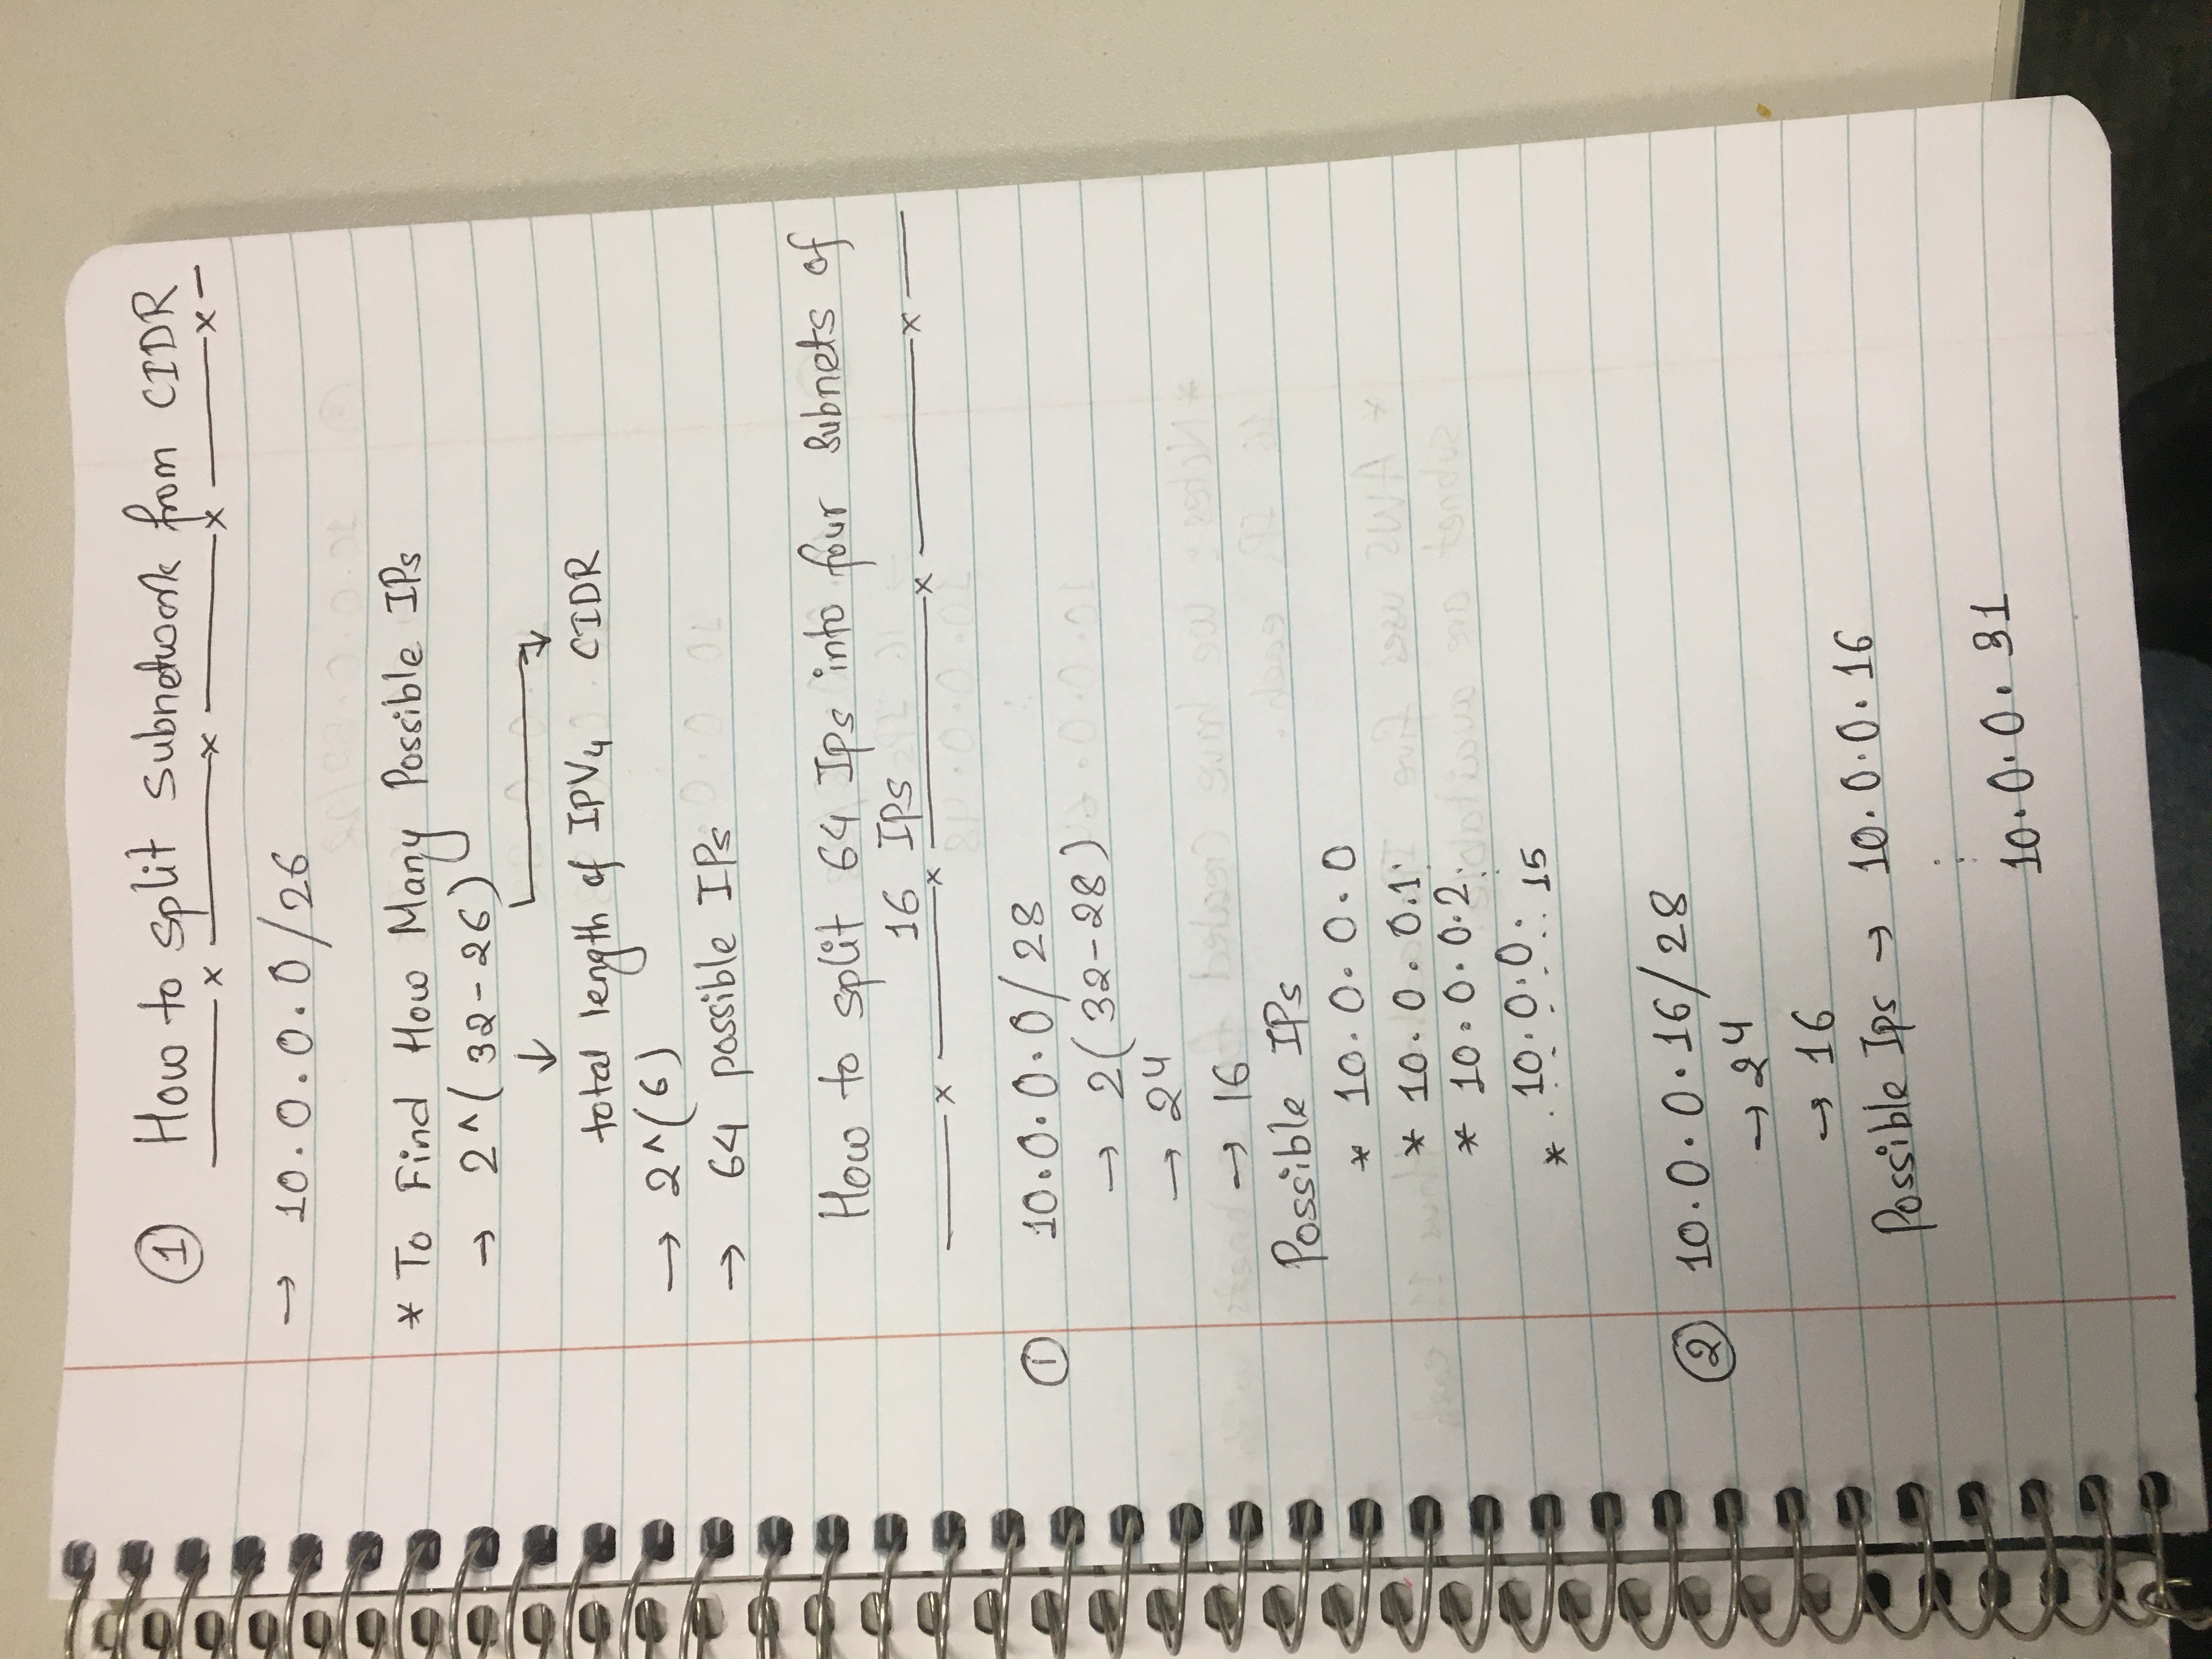 ① How to split subnetwork from CIDR
→ 10.0.0.0/26
* To Find How Many Possible IPs
→ 2^(32-26)
↓ ↓
total length of IPV4 CIDR
→ 2^(6)
→ 64 possible IPs
How to split 64 Ips into four subnets of
16 IPs
① 10.0.0.0/28
→ 2(32-28)
→ 2⁴
→ 16
Possible IPs
* 10.0.0.0
* 10.0.0.1
* 10.0.0.2
* 10.0.0. 15
② 10.0.0.16/28
→ 2⁴
→ 16
Possible Ips → 10.0.0.16
⋮
10.0.0.31